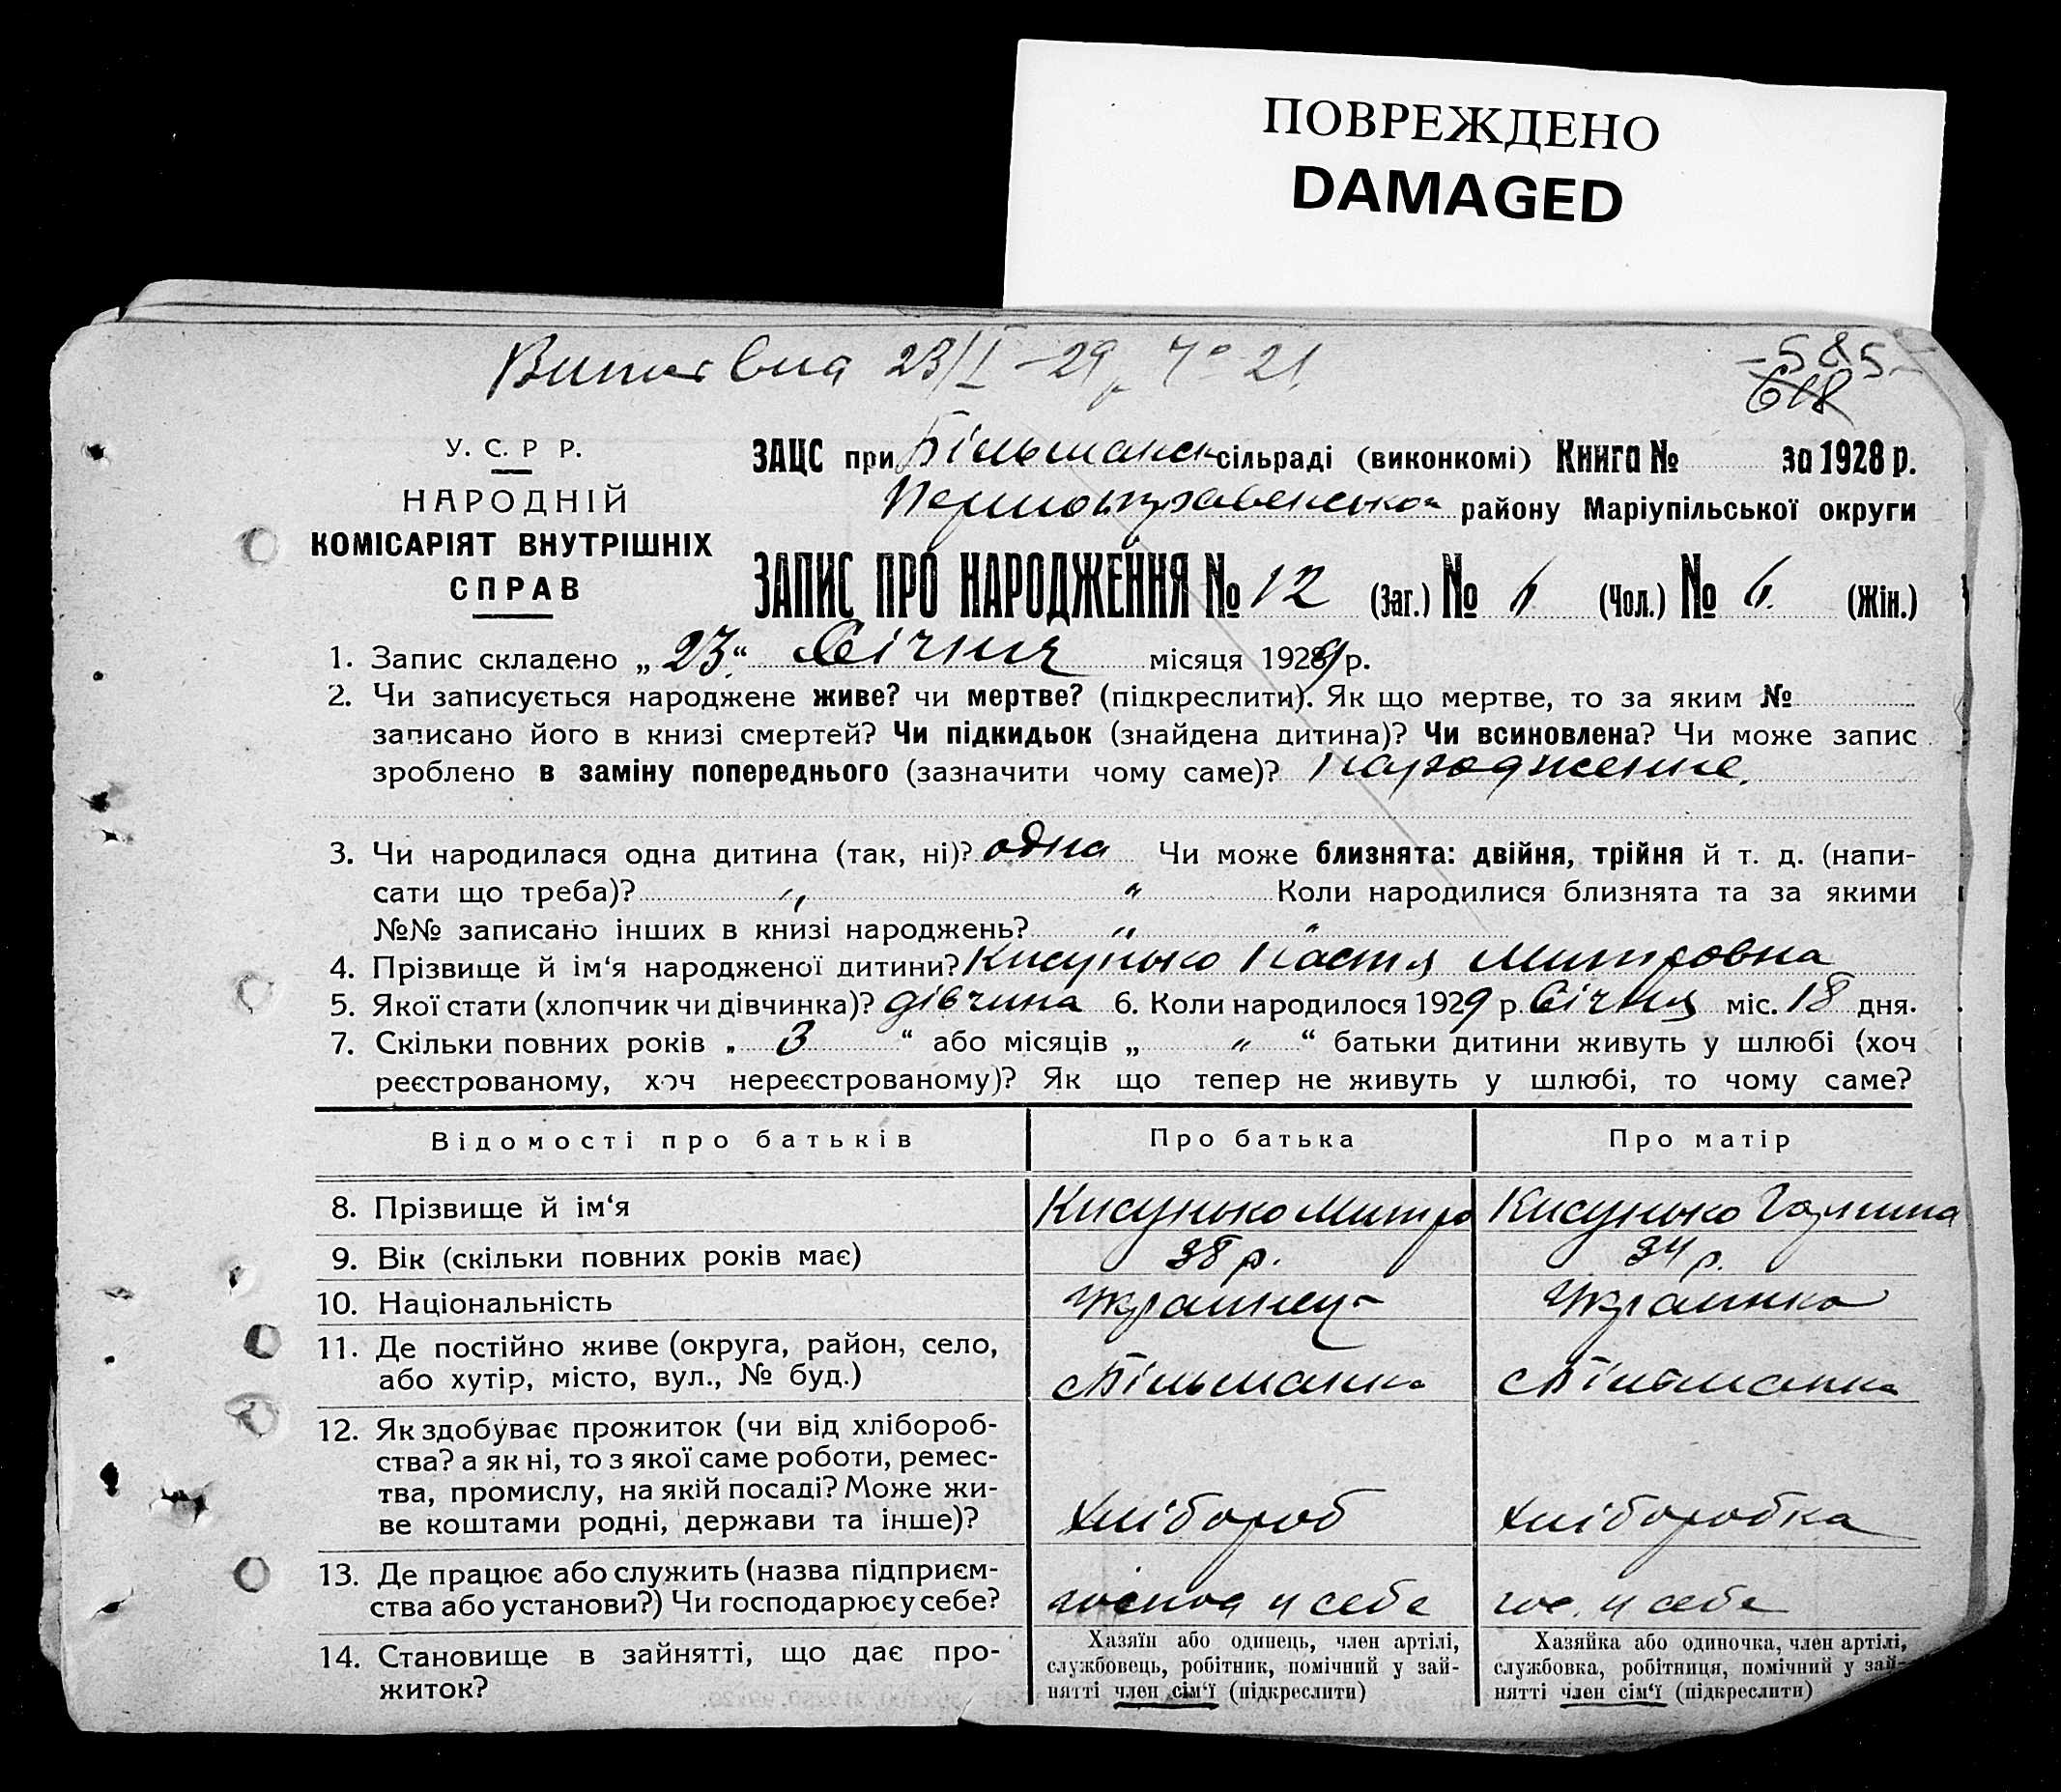 ПОВРЕЖДЕНО
DAMAGED
23/I -29 21
-585-
618
У. С. Р Р.
НАРОДНІЙ
КОМІСАРІЯТ ВНУТРІШНІХ
СПРАВ
ЗАЦС при Більманськ сільраді (виконкомі) Книга № за 1928 р.
району Маріупільської округи
ЗАПИС ПРО НАРОДЖЕННЯ № 12 (Заг.) № 6 (Чол.) № 6. (Жін.)
1. Запис складено „ 23 “ Січня місяця 1929 р.
2. Чи записується народжене живе? чи мертве? (підкреслити). Як що мертве, то за яким №
записано його в книзі смертей? Чи підкидьок (знайдена дитина)? Чи всиновлена? Чи може запис
зроблено в заміну попереднього (зазначити чому саме)? народження.
3. Чи народилася одна дитина (так, ні)? одна Чи може близнята: двійня, трійня й т. д. (напи-
сати що треба)? „ “ Коли народилися близнята та за якими
№№ записано інших в книзі народжень? “ “
4. Прізвище й ім‘я народженої дитини? Кисунько Настя Митровна
5. Якої стати (хлопчик чи дівчинка)? дівчина 6. Коли народилося 1929 р. Січня міс. 18 дня.
7. Скільки повних років „ 3 “ або місяців „ “ “ батьки дитини живуть у шлюбі (хоч
реєстрованому, хоч нереєстрованому)? Як що тепер не живуть у шлюбі, то чому саме?
Відомості про батьків Про батька Про матір
8. Прізвище й ім‘я Кисунько Митро Кисунько Галина
9. Вік (скільки повних років має) 38 р. 34 р.
10. Національність Українець Українка
11. Де постійно живе (округа, район, село,
або хутір, місто, вул., № буд.) с Більманка с Більманка
12. Як здобуває прожиток (чи від хлібороб-
ства? а як ні, то з якої саме роботи, ремес-
тва, промислу, на якій посаді? Може жи-
ве коштами родні, держави та інше)? Хлібороб Хліборобка
13. Де працює або служить (назва підприєм-
ства або установи?) Чи господарює у себе? господ у себе гос. у себе
14. Становище в зайнятті, що дає про-
житок?
Хазяїн або одинець, член артілі,
службовець, робітник, помічний у зай-
нятті член сім‘ї (підкреслити)
Хазяйка або одиночка, член артілі,
службовка, робітниця, помічний у зай-
нятті член сім‘ї (підкреслити)